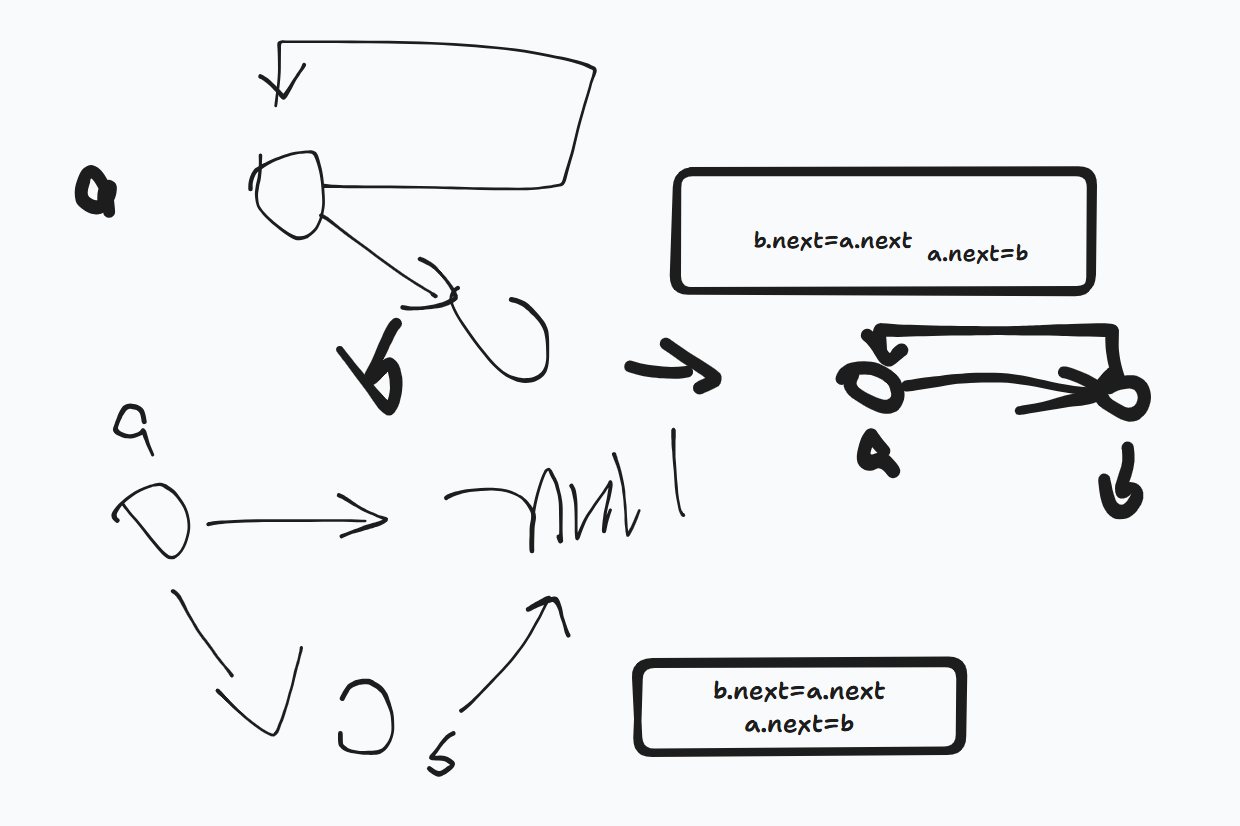 a
b.next=a.next
a.next=b
b
a
b
a
null
b
b.next=a.next
a.next=b